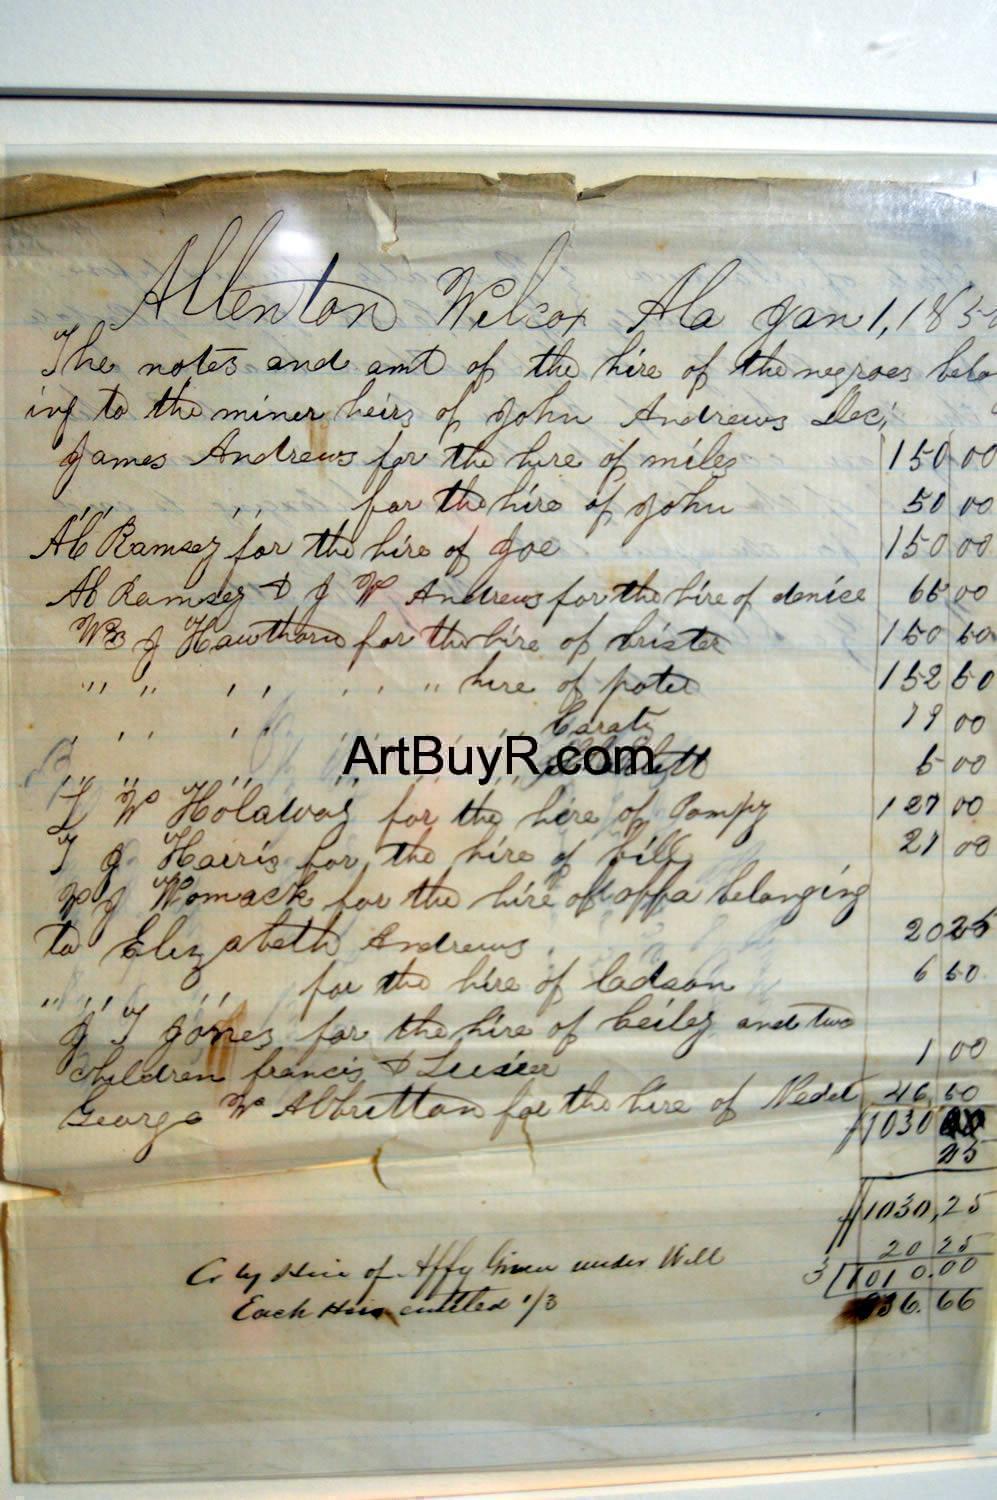 Allenton Wilcox Ala Jan 1, 185
The notes and amt of the hire of the negroes belo
ing to the miner heirs of John Andrews Dec,
James Andrews for the hire of miles 150 00
,, ,, ,, for the hire of John 50 00
Ab Ramsey for the hire of Joe 150 00
Ab Ramsey & J W Andrews for the hire of denice 00
J Hawthorn for the hire of brister 150 50
,, ,, ,, ,, ,, hire of 152 50
,, ,, ,, 00
ArtBuyR.com
00
W Holaway for the hire of Pompy 127 00
T J Harris for the hire of bill 21 00
W J Womack for the hire of affa belonging
to Elizabeth Andrews 20 25
,, ,, ,, for the hire of Cadson 6 50
J T Jones for the hire of Ceiley and two
children francis & 1 00
George W Albritton for the hire of 46,50
1030
25
1030,25
20 25
Cr by Hire of Affy Given under Will 3 1010.00
Each Heir entitled 1/3 336.66